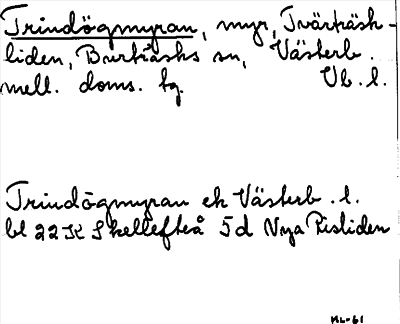 Trindögmyran, myr, Tvärträsk-
liden, Burträsks sn, Västerb.
mell. doms. tg. Vb. l.
Trindögmyran ek Västerb. l.
bl 22 K Skellefteå 5d Nya Risliden
ML-61